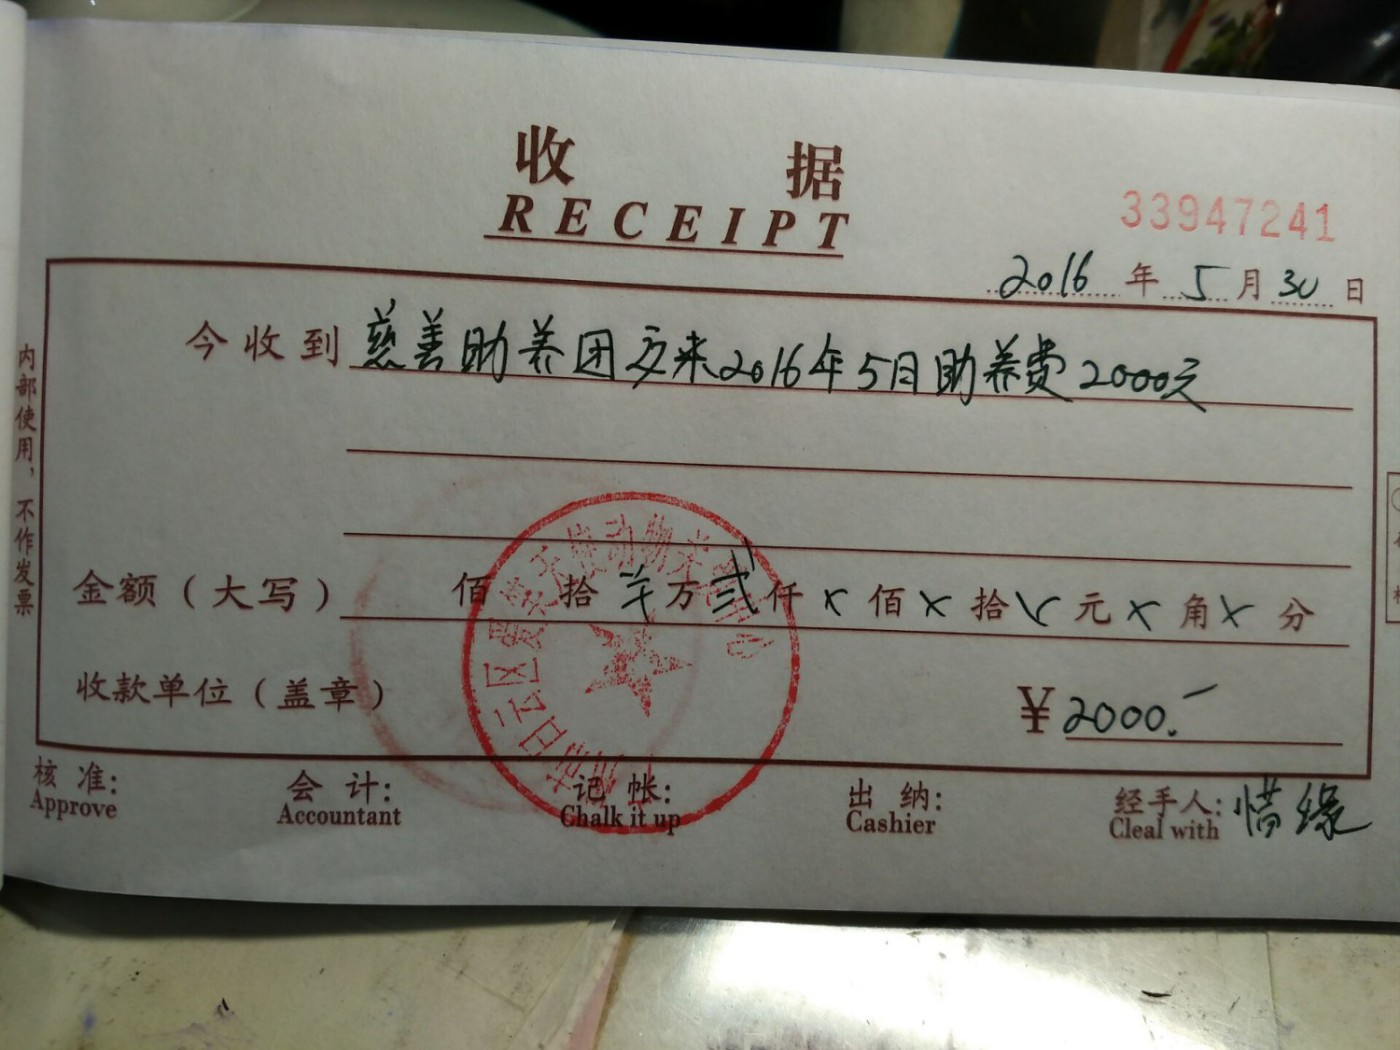 收据
RECEIPT
33947241
2016年5月30日
今收到慈善助养团方来2016年5月助养费2000元
金额（大写） 佰 拾 羊万贰仟×佰×拾×元×角×分
收款单位（盖章） ¥2000.-
核准: 会计: 记帐: 出纳: 经手人: 惜缘
Approve Accountant Chalk it up Cashier Cleal with
内部使用，不作发票